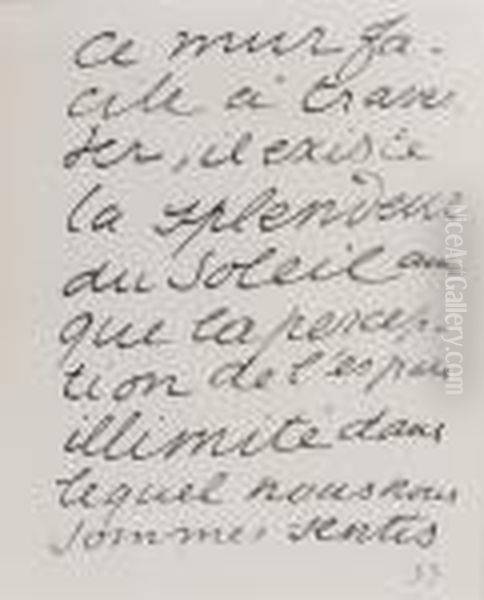 ce mur fa-
cile à
ser, il existe
la splendeur
du soleil
que la percep-
tion de l'espace
illimité dans
lequel nous nous
sommes sentis
33
NiceArtGallery.com